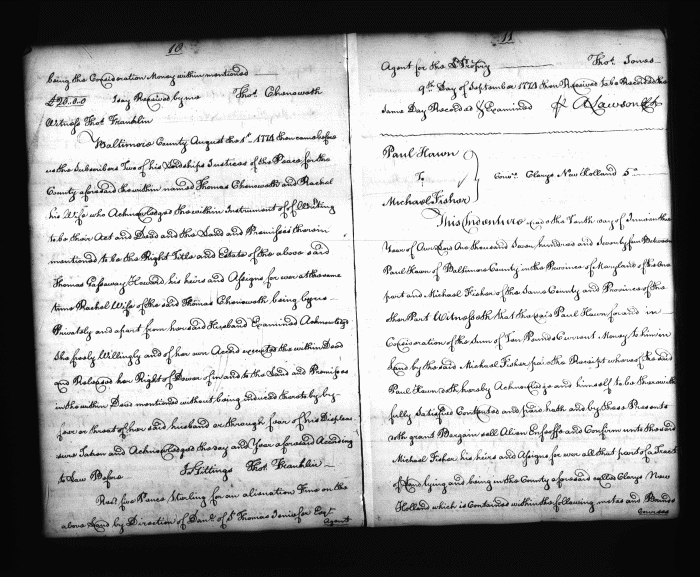 10
being the Consideration Money within mentioned
£20.0.0 Imy Received by me Thos. Chenoweth
Witness Thos. Franklin
Baltimore County August the 1st 1774 then came before
us the Subscribers Two of his Lordships Justices of the Peace for the
County aforesaid the within named Thomas Chenoweth and Rachel
his Wife who Acknowledged the within Instrument of of Writing
to be their Act and Deed and the Land and Premises therein
mentioned to be the Right Title and Estate of the above said
Thomas Gassaway Howard, his heirs and Assigns for ever at the same
time Rachel Wife of the said Thomas Chenoweth being by us
Privately and apart from her said Husband Examined Acknowledge
She freely Willingly and of her own Accord executed the within Deed
and Released her Right of Dower of in and to the Land and Premises
in the within Deed mentioned without being induced thereto by
fear or threat of her said husband or through fear of his Displea
sure Taken and Acknowledged the day and Year aforesaid According
to Law Before J. Gittings Thos. Franklin
Recd. five Pence Sterling for an alienation Fine on the
above Land by Direction of Danl. of St. Thomas Jenifer Esqr.
Agent
11
Agent for the Ld. Propry Thos. Jones
9th Day of September 1774 then Received to be Recorded the
same Day Recorded & Examined A Lawson Clk
Paul Hawn
To
Michael Fisher
Conv. Clarys New Holland 5
This Indenture made the Tenth day of June in the
Year of our Lord One thousand Seven hundred and Seventy four Between
Paul Hawn of Baltimore County in the Province of Maryland of the One
part and Michael Fisher of the Same County and Province of the
other Part Witnesseth that the said Paul Hawn for and in
Consideration of the Sum of Ten Pounds Current Money to him in
hand by the said Michael Fisher paid the Receipt whereof he said
Paul Hawn doth hereby Acknowledge and himself to be therewith
fully Satisfied Contented and paid hath and by these Presents
doth grant Bargain sell Alien Enfeoffe and Confirm unto the said
Michael Fisher his heirs and Assigns for ever all that part of a Tract
of Land lying and being in the County aforesaid called Clarys New
Holland which is Contained within the following metes and Bounds
Courses